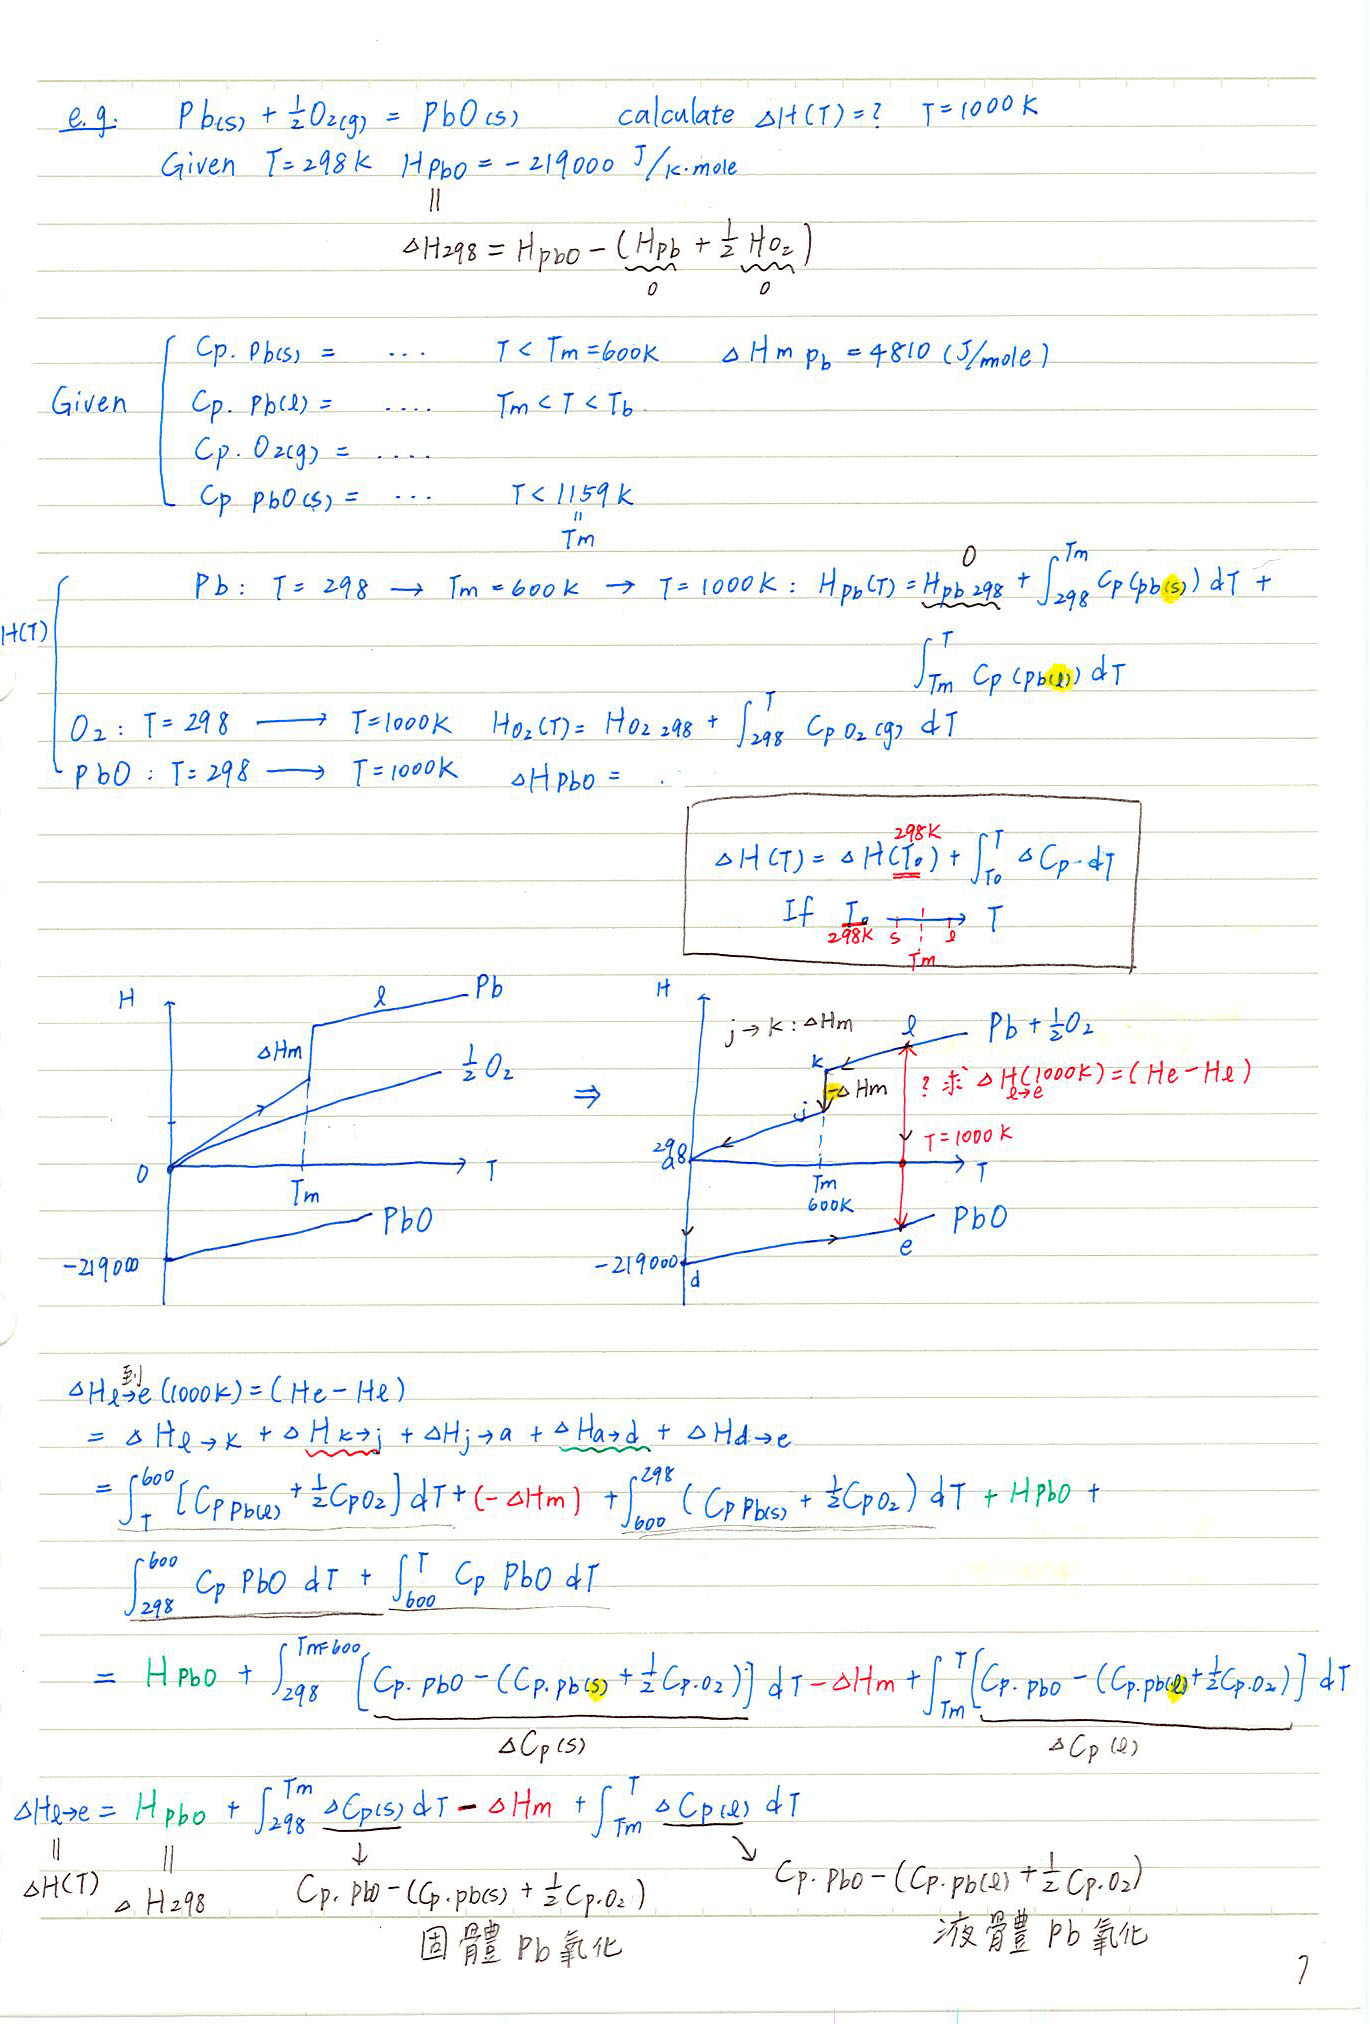 e.g. Pb(s) + ½O2(g) = PbO(s) calculate ΔH(T)=? T=1000K
Given T=298K HPbO = -219000 J/K·mole
||
ΔH298 = HPbO - (HPb + ½ HO2)
0 0
Given
Cp. Pb(s) = ... T < Tm=600K ΔHm Pb = 4810 (J/mole)
Cp. Pb(l) = .... Tm < T < Tb
Cp. O2(g) = ....
Cp PbO(s) = ... T < 1159K
||
Tm
H(T)
0
Pb: T = 298 → Tm = 600K → T = 1000K : HPb(T) = HPb 298 + ∫298^Tm Cp(Pb(s)) dT +
∫Tm^T Cp (Pb(l)) dT
O2 : T = 298 → T=1000K HO2(T) = HO2 298 + ∫298^T Cp O2(g) dT
PbO : T=298 → T=1000K ΔHPbO = .
298K
ΔH(T) = ΔH(To) + ∫To^T ΔCp·dT
If To → T
298K s l
Tm
H
l Pb
ΔHm
½O2
0 T
Tm
PbO
-219000
⇒
H
j→k: ΔHm l Pb + ½O2
k
-ΔHm
? 求 ΔH(1000K) = (He - Hl)
l→e
j
T=1000K
298
a
T
Tm
600K
PbO
e
-219000
d
到
ΔHl→e (1000K) = (He - Hl)
= ΔHl→k + ΔHk→j + ΔHj→a + ΔHa→d + ΔHd→e
= ∫T^600 [Cp Pb(l) + ½CpO2] dT + (-ΔHm) + ∫600^298 (Cp Pb(s) + ½CpO2) dT + HPbO +
∫298^600 Cp PbO dT + ∫600^T Cp PbO dT
= HPbO + ∫298^Tm=600 [Cp.PbO - (Cp.Pb(s) + ½Cp.O2)] dT - ΔHm + ∫Tm^T [Cp.PbO - (Cp.Pb(l) + ½Cp.O2)] dT
ΔCp(s) ΔCp(l)
ΔHl→e = HPbO + ∫298^Tm ΔCp(s) dT - ΔHm + ∫Tm^T ΔCp(l) dT
|| || ↓ ↘
ΔH(T) ΔH298 Cp.PbO - (Cp.Pb(s) + ½Cp.O2) Cp.PbO - (Cp.Pb(l) + ½Cp.O2)
固體 Pb 氧化 液體 Pb 氧化
7